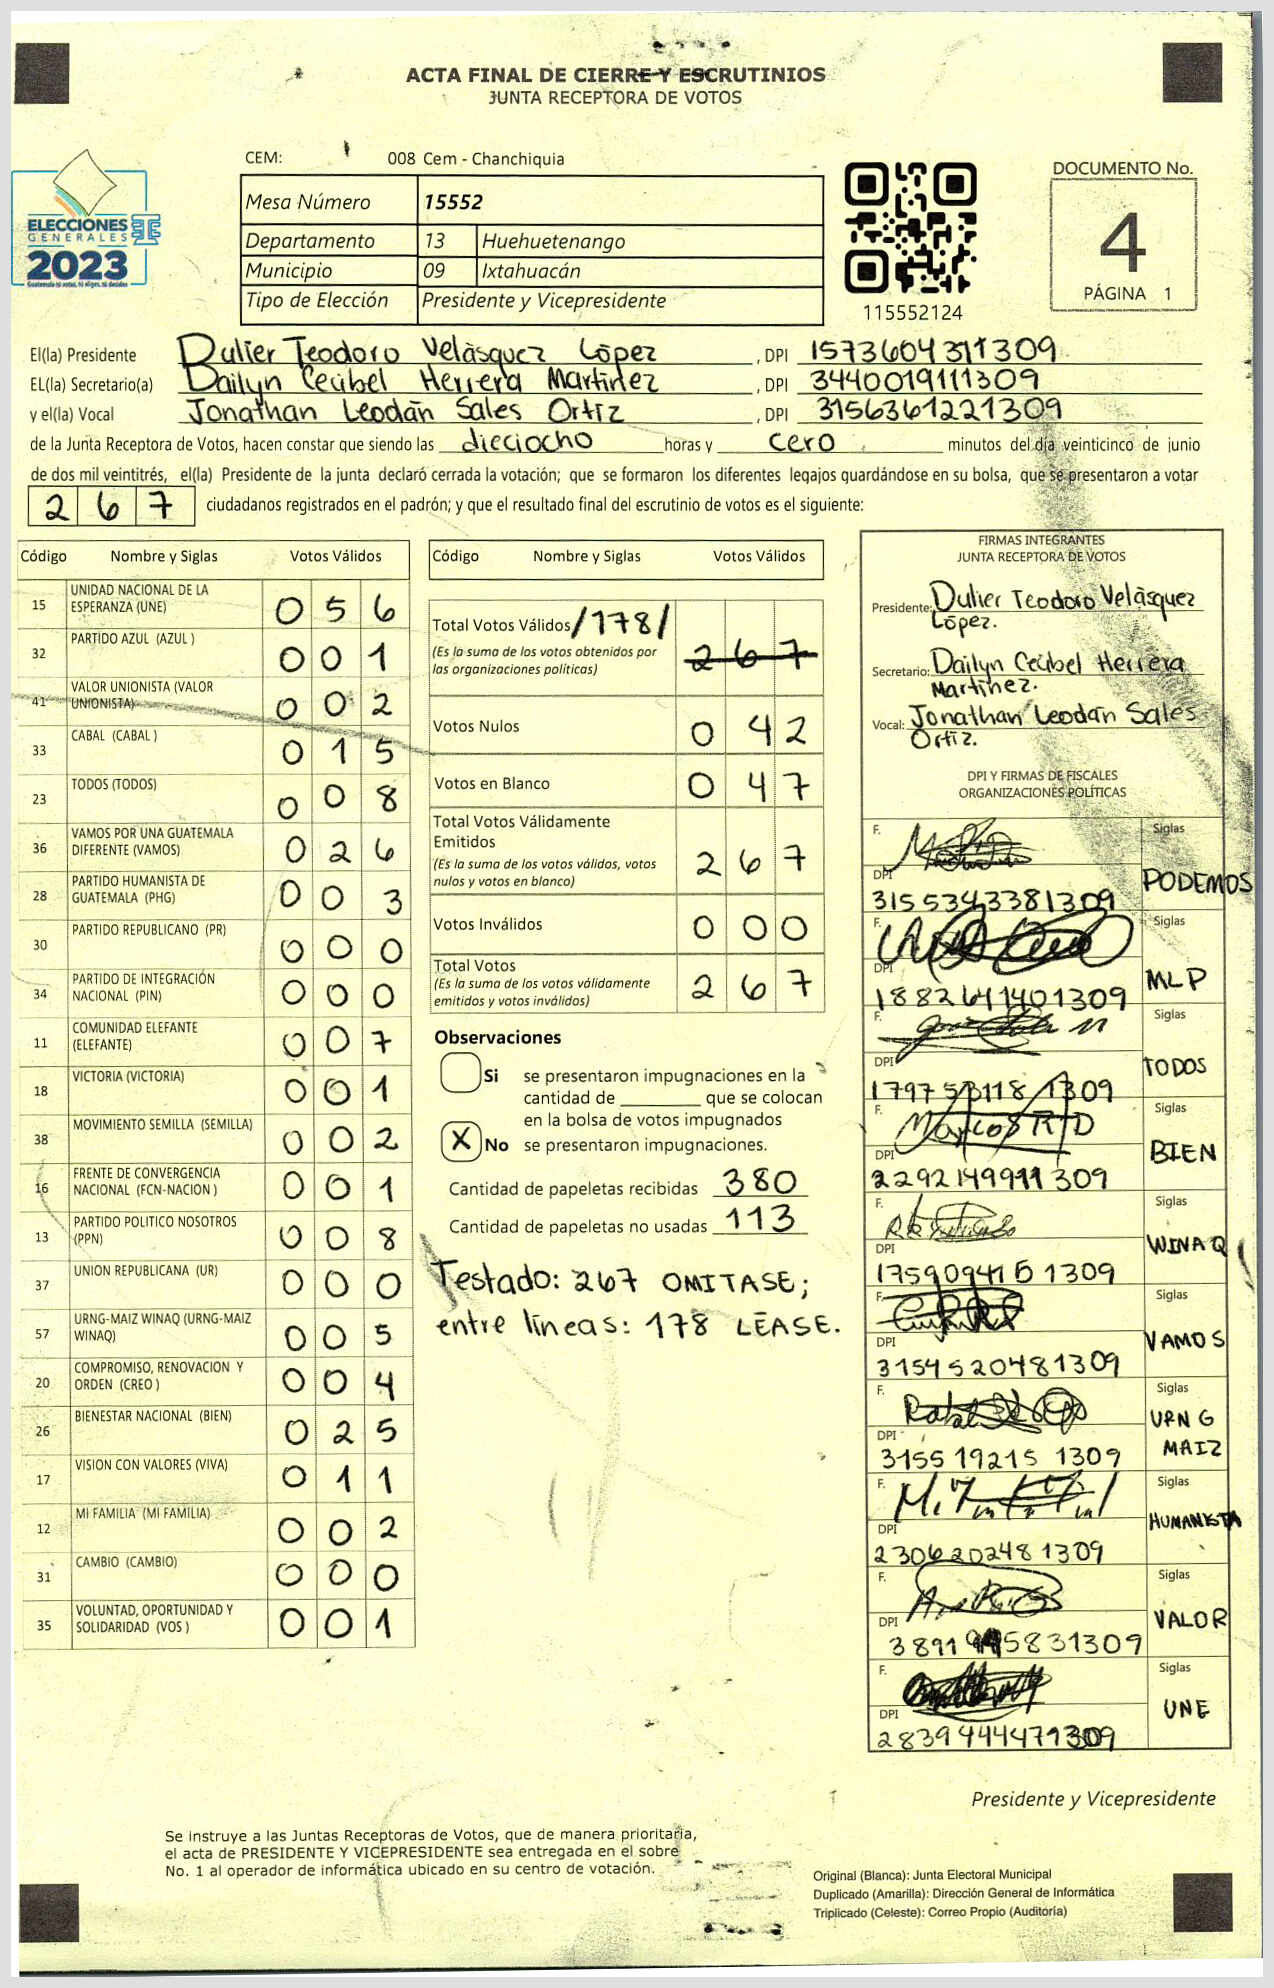 ACTA FINAL DE CIERRE Y ESCRUTINIOS
JUNTA RECEPTORA DE VOTOS
CEM: 008 Cem - Chanchiquia
ELECCIONES
GENERALES
2023
Guatemala tú votas, tú eliges, tú decides
Mesa Número 15552
Departamento 13 Huehuetenango
Municipio 09 Ixtahuacán
Tipo de Elección Presidente y Vicepresidente
115552124
DOCUMENTO No.
4
PÁGINA 1
El(la) Presidente Dulier Teodoro Velàsquez López, DPI 1573604311309
EL(la) Secretario(a) Dailyn Ceübel Herrera Martinez, DPI 3440019111309
y el(la) Vocal Jonathan Leodán Sales Ortiz, DPI 3156361221309
de la Junta Receptora de Votos, hacen constar que siendo las dieciocho horas y cero minutos del día veinticinco de junio
de dos mil veintitrés, el(la) Presidente de la junta declaró cerrada la votación; que se formaron los diferentes legajos guardándose en su bolsa, que se presentaron a votar
267 ciudadanos registrados en el padrón; y que el resultado final del escrutinio de votos es el siguiente:
Código Nombre y Siglas Votos Válidos
15 UNIDAD NACIONAL DE LA
ESPERANZA (UNE) 056
32 PARTIDO AZUL (AZUL ) 001
41 VALOR UNIONISTA (VALOR
UNIONISTA) 002
33 CABAL (CABAL ) 015
23 TODOS (TODOS) 008
36 VAMOS POR UNA GUATEMALA
DIFERENTE (VAMOS) 026
28 PARTIDO HUMANISTA DE
GUATEMALA (PHG) 003
30 PARTIDO REPUBLICANO (PR) 000
34 PARTIDO DE INTEGRACIÓN
NACIONAL (PIN) 000
11 COMUNIDAD ELEFANTE
(ELEFANTE) 007
18 VICTORIA (VICTORIA) 001
38 MOVIMIENTO SEMILLA (SEMILLA) 002
16 FRENTE DE CONVERGENCIA
NACIONAL (FCN-NACION ) 001
13 PARTIDO POLITICO NOSOTROS
(PPN) 008
37 UNION REPUBLICANA (UR) 000
57 URNG-MAIZ WINAQ (URNG-MAIZ
WINAQ) 005
20 COMPROMISO, RENOVACION Y
ORDEN (CREO ) 004
26 BIENESTAR NACIONAL (BIEN) 025
17 VISION CON VALORES (VIVA) 011
12 MI FAMILIA (MI FAMILIA) 002
31 CAMBIO (CAMBIO) 000
35 VOLUNTAD, OPORTUNIDAD Y
SOLIDARIDAD (VOS ) 001
Código Nombre y Siglas Votos Válidos
Total Votos Válidos /178/ 267
(Es la suma de los votos obtenidos por
las organizaciones políticas)
Votos Nulos 042
Votos en Blanco 047
Total Votos Válidamente
Emitidos
(Es la suma de los votos válidos, votos
nulos y votos en blanco) 267
Votos Inválidos 000
Total Votos
(Es la suma de los votos válidamente
emitidos y votos inválidos) 267
Observaciones
Si se presentaron impugnaciones en la
cantidad de ________ que se colocan
en la bolsa de votos impugnados
X No se presentaron impugnaciones.
Cantidad de papeletas recibidas 380
Cantidad de papeletas no usadas 113
Testado: 267 OMITASE;
entre líneas: 178 LÉASE.
FIRMAS INTEGRANTES
JUNTA RECEPTORA DE VOTOS
Presidente: Dulier Teodoro Velàsquez
López.
Secretario: Dailyn Ceübel Herrera
Martinez.
Vocal: Jonathan Leodán Sales
Ortiz.
DPI Y FIRMAS DE FISCALES
ORGANIZACIONES POLÍTICAS
F. Siglas
DPI 3155343381309 PODEMOS
F. Siglas
DPI 1882641401309 MLP
F. Siglas
DPI TODOS
F. Marcos Siglas
DPI 2292149911309 BIEN
F. Siglas
DPI WINAQ
F. Siglas
DPI 3154520481309 VAMOS
F. Siglas
DPI 3155192151309 URNG
MAIZ
F. Siglas
DPI 2306202481309 HUMANISTA
F. Siglas
DPI VALOR
F. Siglas
DPI UNE
Presidente y Vicepresidente
Se instruye a las Juntas Receptoras de Votos, que de manera prioritaria,
el acta de PRESIDENTE Y VICEPRESIDENTE sea entregada en el sobre
No. 1 al operador de informática ubicado en su centro de votación.
Original (Blanca): Junta Electoral Municipal
Duplicado (Amarilla): Dirección General de Informática
Triplicado (Celeste): Correo Propio (Auditoría)